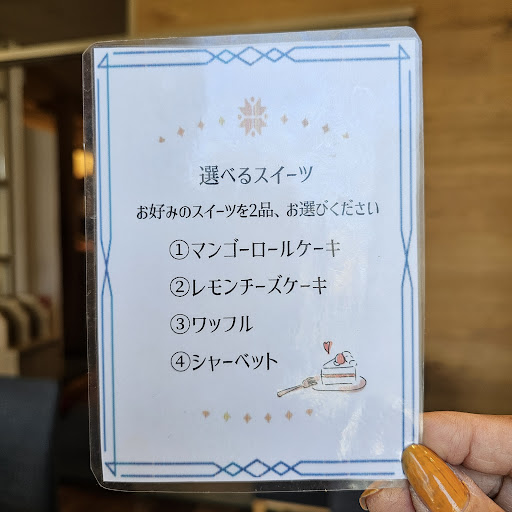 選べるスイーツ
お好みのスイーツを2品、お選びください
①マンゴーロールケーキ
②レモンチーズケーキ
③ワッフル
④シャーベット